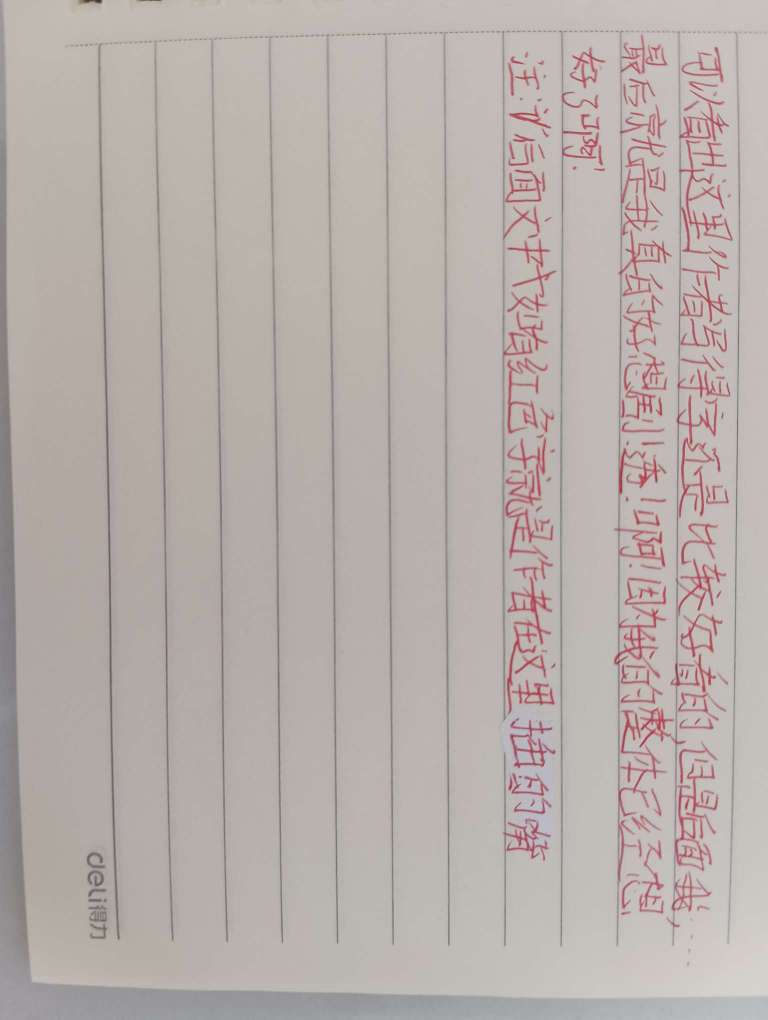 可以看出这里作者写得字还是比较好看的,但是后面我,……
最后就是我真的好想剧透!啊!因为我的整体已经想
好了啊!
注:说后面文中如有红色字就是作者在这里插的嘴
deli得力